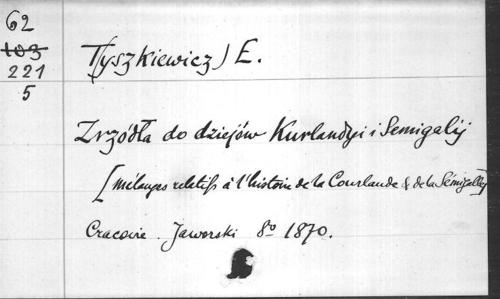 62
103
221
5
T(yszkiewicz) E.
Zrzódła do dziejów Kurlandyi i Semigalij
[mélanges relatifs à l'histoire de la Courlande & de la Sémigalle]
Cracovie. Jaworski 8º 1870.